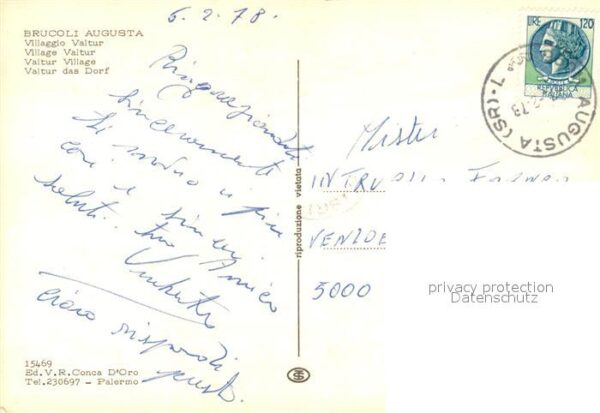 6.2.78.
BRUCOLI AUGUSTA
Villaggio Valtur
Village Valtur
Valtur Village
Valtur das Dorf
Ringraziandoti
sinceramente
ti
con i
saluti. tuo Amico
Umberto
ciao rispondi
presto.
15469
Ed. V.R. Conca D'Oro
Tel. 230697 - Palermo
riproduzione vietata
LIRE 120
REPVBBLICA
ITALIANA
AUGUSTA (SR)
Mister
5000
privacy protection
Datenschutz